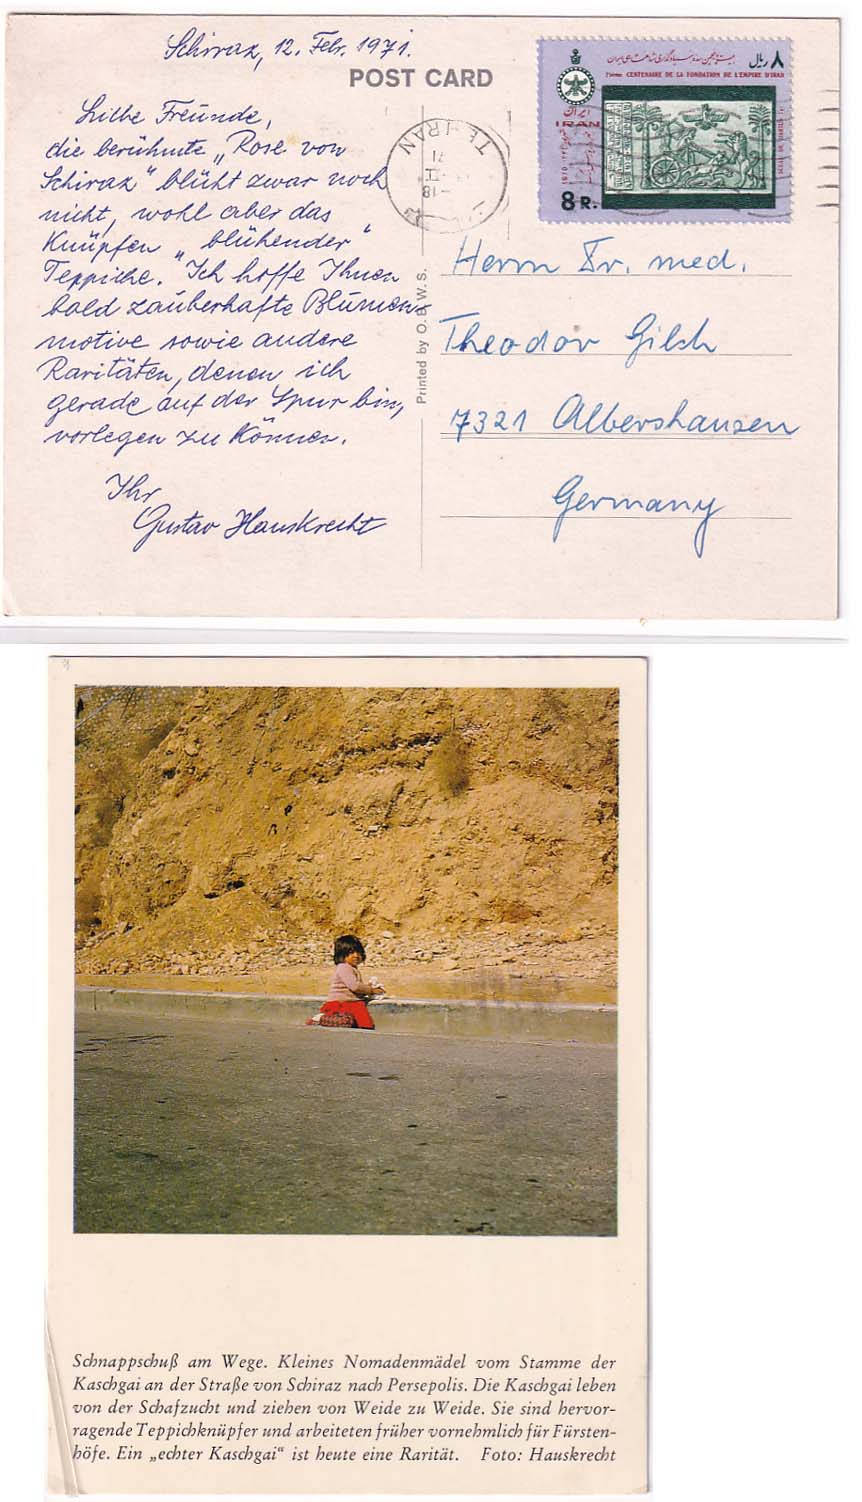 Schiraz, 12. Febr. 1971.
POST CARD
Liebe Freunde,
die berühmte „Rose von
Schiraz" blüht zwar noch
nicht, wohl aber das
Knüpfen „blühender"
Teppiche. Ich hoffe Ihnen
bald zauberhafte Blumen-
motive sowie andere
Raritäten, denen ich
gerade auf der Spur bin,
vorlegen zu können.
Ihr
Gustav Hauskrecht
Printed by O.B.W.S.
TEHRAN
۸ ریال
25ème CENTENAIRE DE LA FONDATION DE L'EMPIRE D'IRAN
ایران
IRAN
1970
8 R.
Herrn Dr. med.
Theodor Gilch
7321 Albershausen
Germany
Schnappschuß am Wege. Kleines Nomadenmädel vom Stamme der
Kaschgai an der Straße von Schiraz nach Persepolis. Die Kaschgai leben
von der Schafzucht und ziehen von Weide zu Weide. Sie sind hervor-
ragende Teppichknüpfer und arbeiteten früher vornehmlich für Fürsten-
höfe. Ein „echter Kaschgai" ist heute eine Rarität. Foto: Hauskrecht